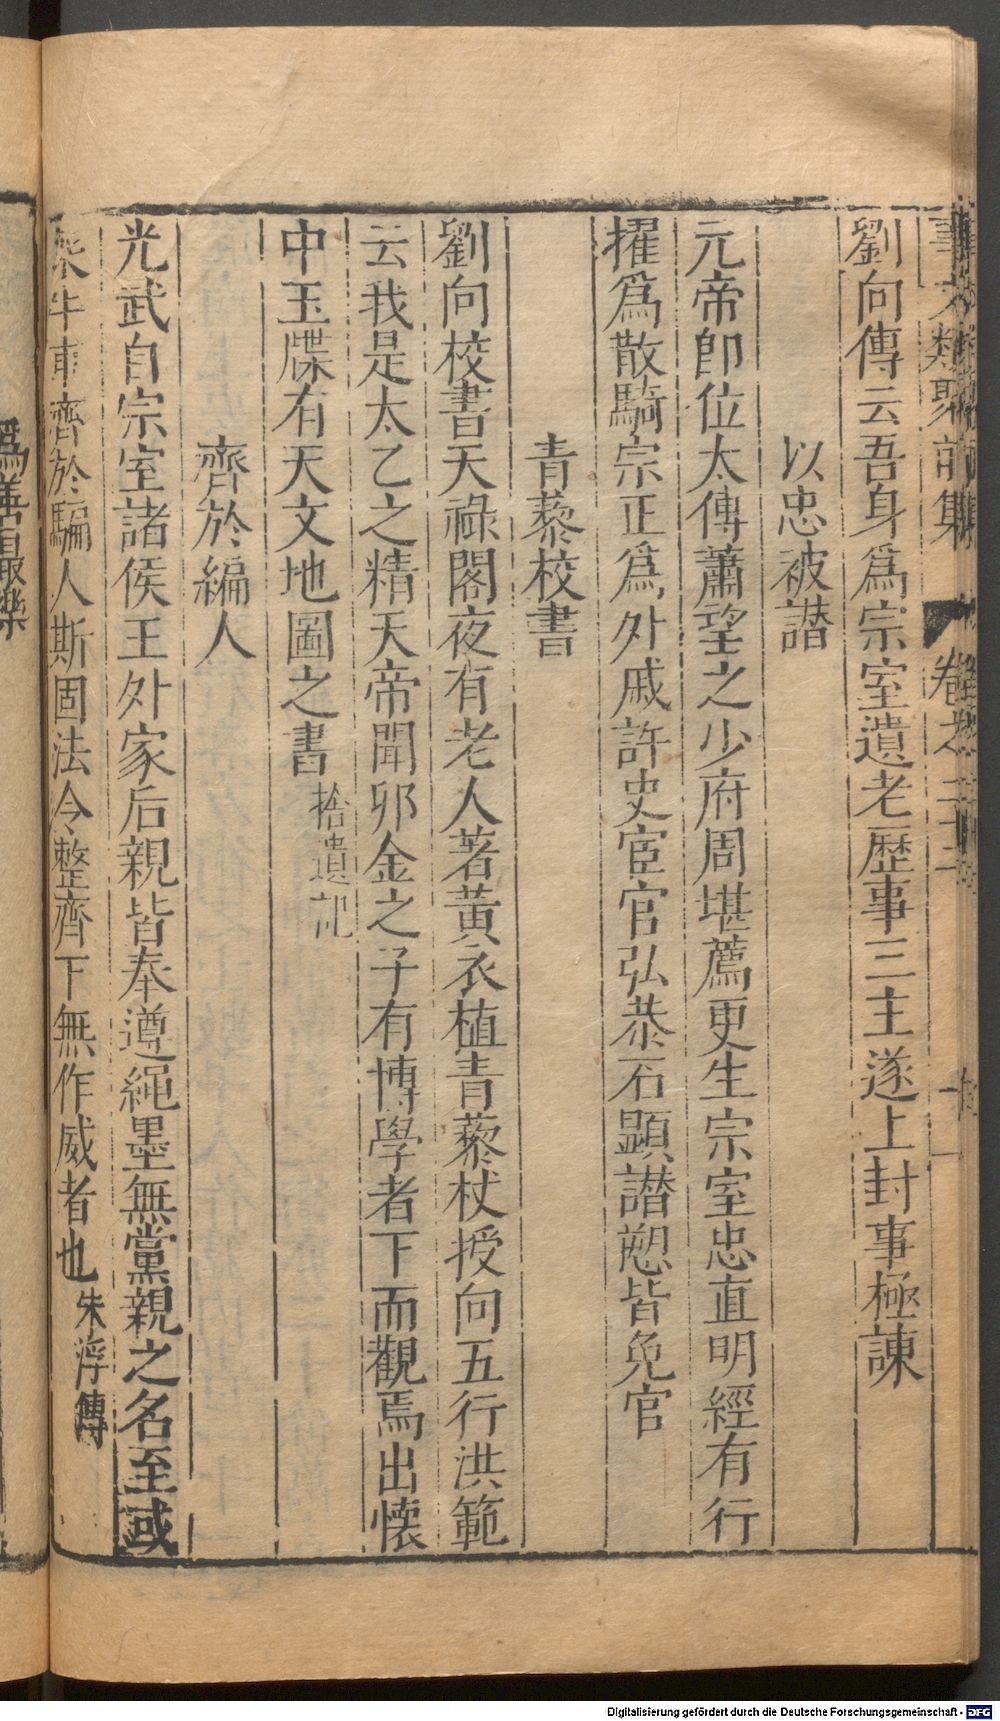 事文類聚前集 卷之二十二 十一
劉向傳云吾身爲宗室遺老歷事三主遂上封事極諫
以忠被譖
元帝卽位太傳蕭望之少府周堪薦更生宗室忠直明經有行
擢爲散騎宗正爲外戚許史宦官弘恭石顯譖愬皆免官
青藜校書
劉向校書天祿閣夜有老人著黃衣植青藜杖授向五行洪範
云我是太乙之精天帝聞卯金之子有博學者下而觀焉出懷
中玉牒有天文地圖之書 拾遺記
齊於編人
光武自宗室諸侯王外家后親皆奉遵繩墨無黨親之名至或
乘牛車齊於騙人斯固法令整齊下無作威者也 朱浮傳
爲善最樂
Digitalisierung gefördert durch die Deutsche Forschungsgemeinschaft - DFG